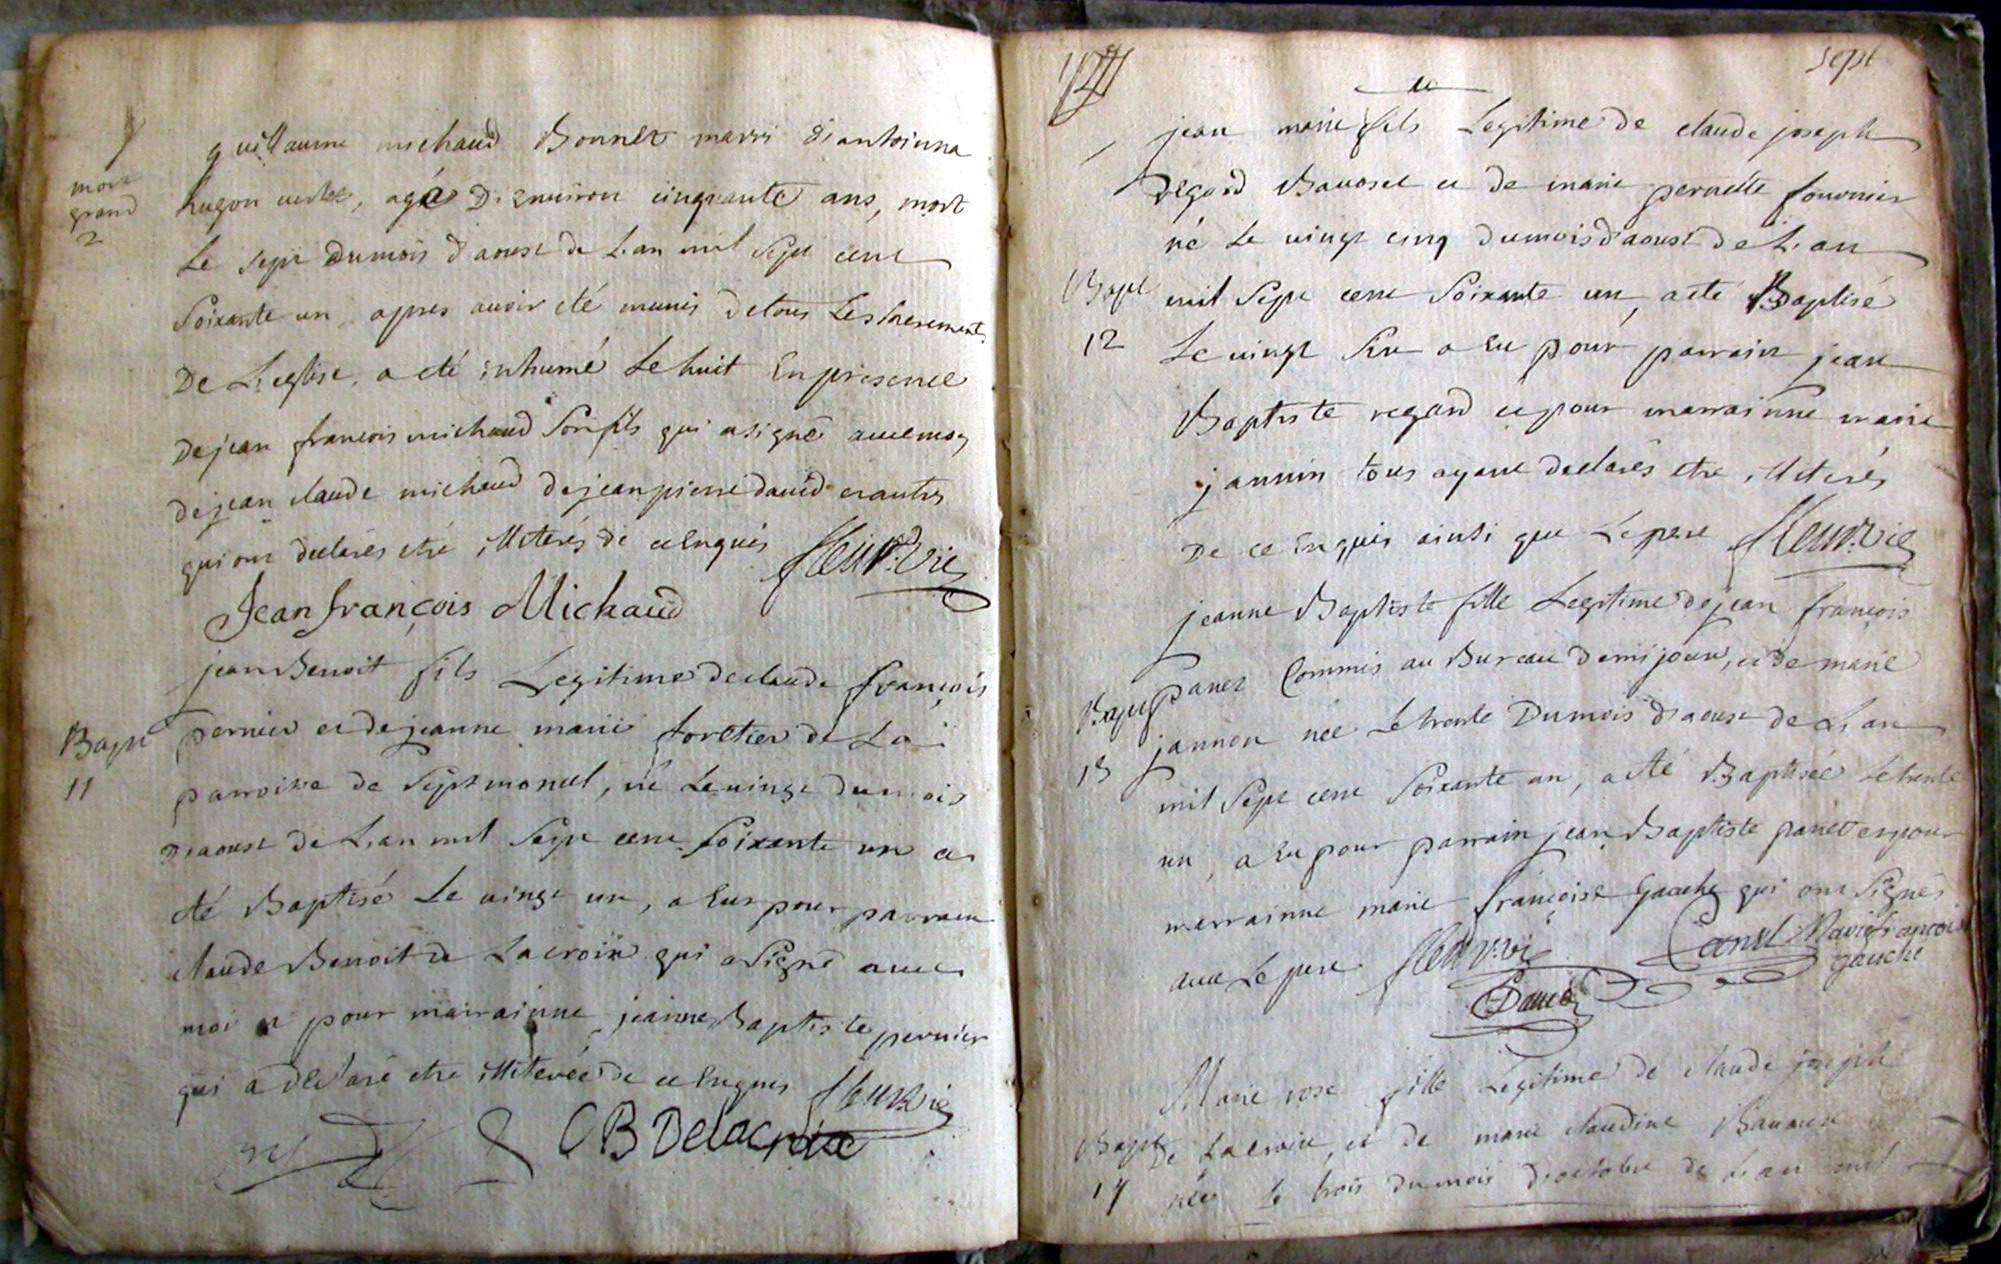 guillaume michaud Bonnet marri d'antoinna
mort
grand
2
hugon verte, agé D'Environ cinquante ans, mort
Le sept Dumois d'aoust de L'an mil Sept cent
Soixante un, apres avoir eté munis detous Les sacrements
De L'eglise, a eté inhumé Le huit En presence
De jean francois michaud Son fils qui a signé avec moy
De jean claude michaud De jean pierre david et autres
qui ont declarés etre illiterés de ce Enquis fleury vic
Jean françois Michaud
jean Benoit fils Legitime de claude françois
Bapt
11
pernier et de jeanne marie forestier de La
parroisse de Septmoncel, né Le vingt du mois
D'aoust de L'an mil Sept cent soixante un a
eté Baptisé Le vingt un, a Eut pour parrain
claude Benoit de Lacroix qui a Signé avec
moi et pour marrainne jeanne Baptiste pernier
qui a declaré etre illiterée de ce Enquis fleury vic
CB Delacroix
sept
jean marie fils Legitime de claude joseph
regard Bavosel et de marie pernette fournier
né Le vingt cinq du mois d'aoust de L'an
Bapt
12
mil Sept cent Soixante un, a eté Baptisé
Le vingt Six a Eu pour parrain jean
Baptiste regard et pour marrainne marie
jannin tous ayant declarés etre illiterés
De ce Enquis ainsi que Le pere fleury vic
jeanne Baptiste fille Legitime de jean francois
Bapt
13
panet Commis au Bureau de mijoux, et de marie
jannon née Le trente Dumois d'aoust de L'an
mil Sept cent Soixante un, a eté Baptisée Le trente
un, a Eu pour parrain jean Baptiste panet et pour
marrainne marie françoise Gauche qui ont Signés
avec Le pere fleury vic Panet Marie françoise
gauche
Panet
Marie rose fille Legitime de claude joseph
Bapt
14
De Lacroix, et de marie claudine Bavoux
née Le trois du mois d'octobre de L'an mil